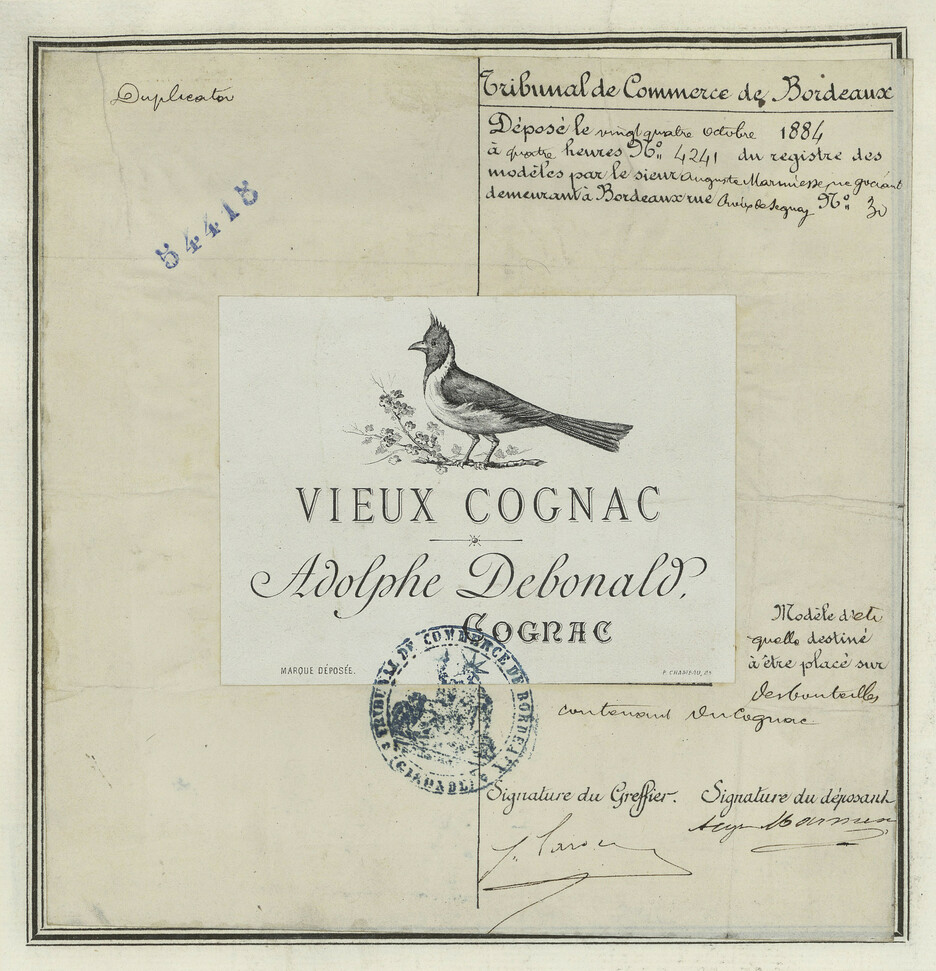 Duplicata
54418
Tribunal de Commerce de Bordeaux
Déposé le vingt quatre octobre 1884
à quatre heures No. 4241 du registre des
modèles par le sieur Auguste Marmiesse, negociant
demeurant à Bordeaux rue Croix de Seguey No. 30
VIEUX COGNAC
Adolphe Debonald,
COGNAC
MARQUE DÉPOSÉE.
Modèle d'eti
quelle destiné
à être placé sur
des bouteilles
contenant du Cognac
TRIBUNAL DE COMMERCE DE BORDEAUX
(GIRONDE)
Signature du Greffier. Signature du déposant